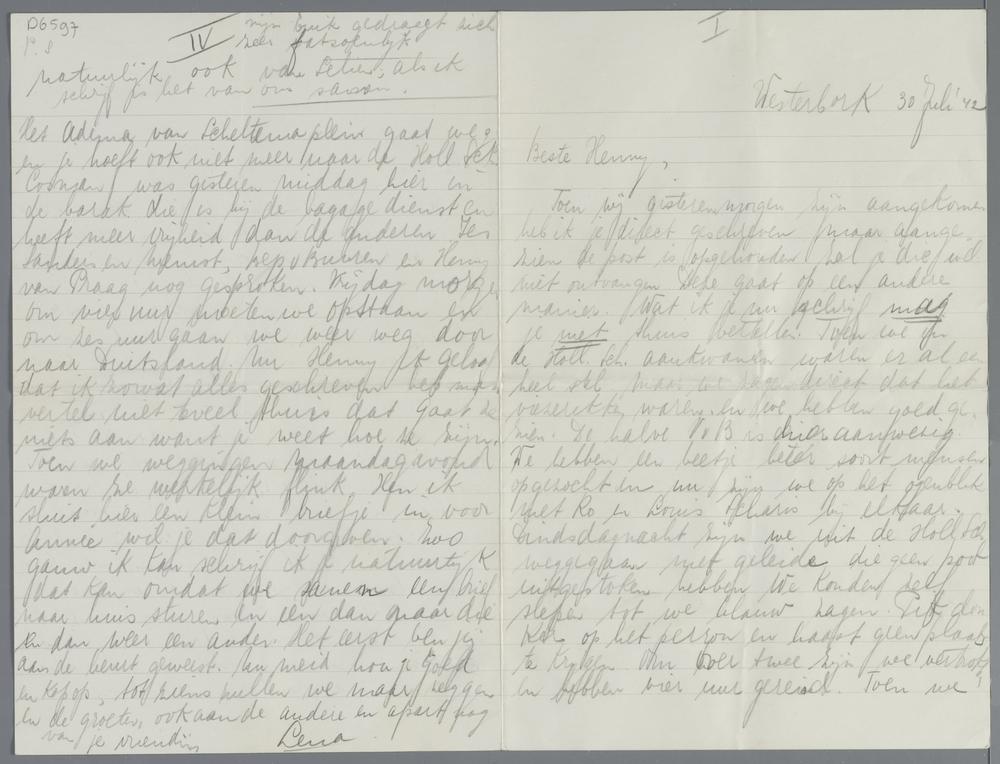 I
Westerbork 30 Juli '42
Beste Henny,
Toen wij gisterenmorgen zijn aangekomen
heb ik je direct geschreven maar aange-
zien de post is opgehouden zal je die wel
niet ontvangen. Deze gaat op een andere
manier. Wat ik je nu schrijf mag
je niet thuis vertellen. Toen we in
de Holl. Sch. aankwamen waren er al een
heel stel maar we zagen direct dat het
waren en we hebben goed ge-
zien. De halve V v B is hier aanwezig.
We hebben een beetje beter soort mensen
opgezocht en nu zijn we op het ogenblik
met Ko en Louis Scharis bij elkaar.
Dinsdagnacht zijn we uit de Holl Sch
weggegaan met geleide die geen poot
uitgestoken hebben. We konden zelf
slepen tot we blauw zagen. Pik don-
ker op het perron en haast geen plaats
te krijgen. Om over twee zijn we vertrokken
en hebben vier uur gereisd. Toen we
D6597
IV
P.S
mijn gedraagt zich
zeer fatsoenlijk
natuurlijk ook van als ik
schrijf is het van ons samen.
Het Adema van Scheltema plein gaat weg
en je hoeft ook niet meer naar de Holl Sch
Cosman was gisteren middag hier in
de barak die is bij de bagage dienst en
heeft meer vrijheid dan de anderen. Jes
Sanders en Buuren en Henny
van Praag nog gesproken. Vrijdag morgen
om vier uur moeten we opstaan en
om zes uur gaan we weer weg door
naar Duitsland. Nu Henny ik geloof
dat ik zowat alles geschreven heb maar
vertel niet teveel thuis dat gaat ze
niets aan want je weet hoe ze zijn.
Toen we weggingen maandagavond
waren ze werkelijk flink. Hen ik
sluit hier een klein briefje in voor
Annie wil je dat doorgeven. Zoo
gauw ik kan schrijf ik je natuurlijk
dat kan omdat we samen een brief
naar huis sturen en een dan naar die
en dan weer een ander. Het eerst ben jij
aan de beurt geweest. Nu meid hou je goed
en kop op, tot ziens zullen we maar zeggen
en de groeten, ook aan de andere en apart nog
van je vriendin
Lena